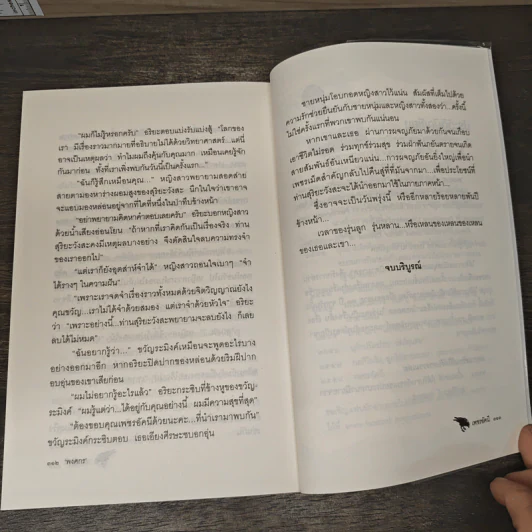 "ผมก็ไม่รู้หรอกครับ" อริยะตอบแบ่งรับแบ่งสู้ "โลกของ
เรา มีเรื่องราวมากมายที่อธิบายไม่ได้ด้วยวิทยาศาสตร์...แต่นี่
อาจเป็นเหตุผลว่า ทำไมผมถึงคุ้นกับคุณมาก เหมือนเคยรู้จัก
กันมาก่อน ทั้งที่เราเพิ่งพบกันวันนี้เป็นครั้งแรก..."
"ฉันก็รู้สึกเหมือนคุณ..." หญิงสาวพยายามสอดส่าย
สายตามองหาร่างผอมสูงของสุริยะวังสะ นึกในใจว่าเขาอาจ
จะแอบมองหล่อนอยู่จากที่ใดที่หนึ่งในป่าทึบข้างหน้า
"อย่าพยายามคิดหาคำตอบเลยครับ" อริยะบอกหญิงสาว
ด้วยน้ำเสียงอ่อนโยน "ถ้าหากที่เราคิดกันเป็นเรื่องจริง ท่าน
สุริยะวังสะคงมีเหตุผลบางอย่าง จึงตัดสินใจลบความทรงจำ
ของเราออกไป"
"แต่เราก็ยังอุตส่าห์จำได้" หญิงสาวถอนใจเบาๆ "จำ
ได้รางๆ ในความฝัน"
"เพราะเราจดจำเรื่องราวทั้งหมดด้วยจิตวิญญาณยังไง
คุณขวัญ...เราไม่ได้จำด้วยสมอง แต่เราจำด้วยหัวใจ" อริยะ
ว่า "เพราะอย่างนี้...ท่านสุริยะวังสะพยายามจะลบยังไง ก็เลย
ลบได้ไม่หมด"
"ฉันอยากรู้ว่า..." ขวัญระมิงค์เหมือนจะพูดอะไรบาง
อย่างออกมาอีก หากอริยะปิดปากของหล่อนด้วยริมฝีปาก
อบอุ่นของเขาเสียก่อน
"ผมไม่อยากรู้อะไรแล้ว" อริยะกระซิบที่ข้างหูของขวัญ-
ระมิงค์ "ผมรู้แต่ว่า...ได้อยู่กับคุณอย่างนี้ ผมมีความสุขที่สุด"
"ต้องขอบคุณเพชรอัคนีด้วยนะคะ...ที่นำเรามาพบกัน"
ขวัญระมิงค์กระซิบตอบ เธอเอียงศีรษะซบอกอุ่น
๓๓๒ พงศกร
ชายหนุ่มโอบกอดหญิงสาวไว้แน่น สัมผัสที่เต็มไปด้วย
ความรักช่วยยืนยันกับชายหนุ่มและหญิงสาวทั้งสองว่า...ครั้งนี้
ไม่ใช่ครั้งแรกที่พวกเขาพบกันแน่นอน
หากเขาและเธอ ผ่านการผจญภัยมาด้วยกันจนเกือบ
เอาชีวิตไม่รอด ร่วมทุกข์ร่วมสุข ร่วมฝ่าฟันภยันตรายจนเกิด
สายสัมพันธ์อันเหนียวแน่น การผจญภัยอันยิ่งใหญ่เพื่อนำ
เพชรเม็ดสำคัญกลับไปคืนสู่ที่ที่มันจากมา...เพื่อประโยชน์ที่
ท่านสุริยะวังสะจะได้นำออกมาใช้ในภายภาคหน้า...
ซึ่งอาจจะเป็นวันพรุ่งนี้ หรืออีกหลายร้อยหลายพันปี
ข้างหน้า...
เวลาของรุ่นลูก รุ่นหลาน...หรือเหลนของเหลนของเหลน
ของเธอและเขา...
จบบริบูรณ์
เพชรอัคนี ๓๓๓